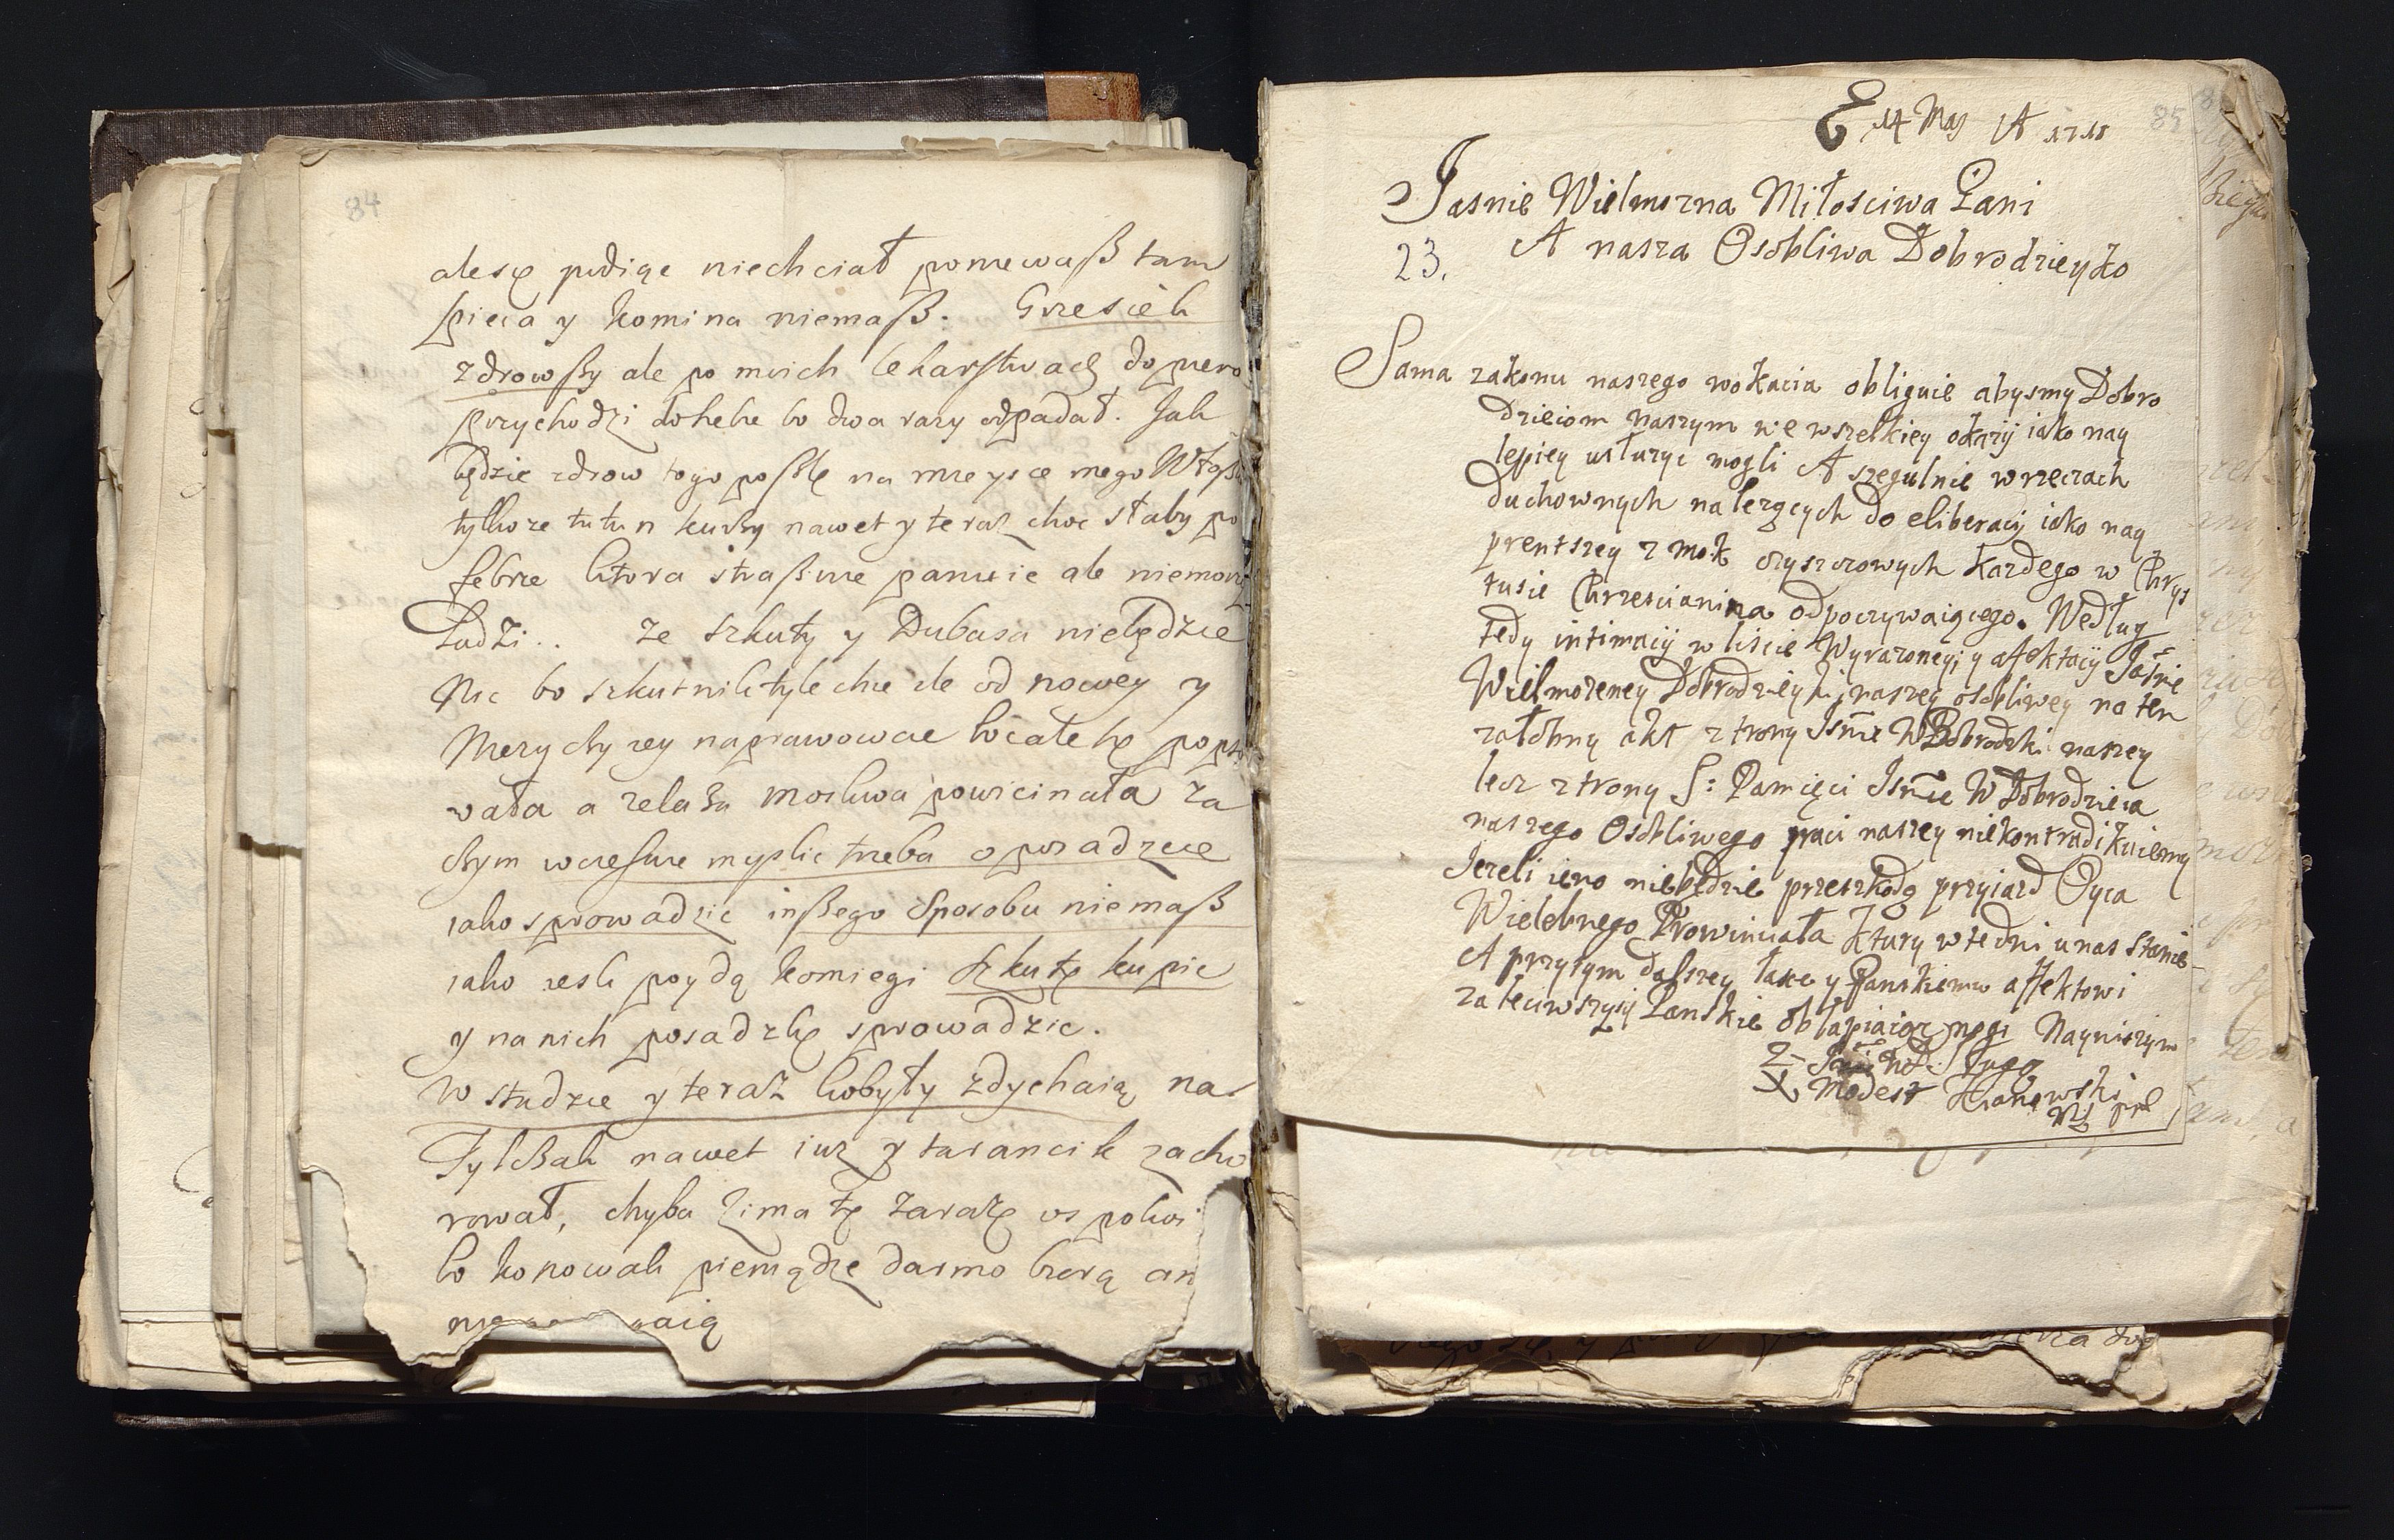 84
alesię niechciał poniewaß tam
pieca y komina niemaß. Grzesiek
zdrowßy ale po moich lekarstwach dopiero
przychodzi bo dwa razy odpadał. Jak
będzie zdrow tego poßlę na mieysce mego
tylko ze tutun kurzy nawet y teraz choc słaby po
febrze ktora straßnie panuie ale niemorzy
Ludzi.. ze szkuty y Dubasa niebędzie
nic bo szkutnik tyle chce ile od nowey y
naprawowac bo całe się popso
wała a zelaza moskwa powicinała za
czym wczesnie myslic trzeba o
iako sprowadzic inßego Sposobu niemaß
iako iesli poydą komiegi Szkutę kupic
y na nich posadzkę sprowadzic.
w stadzie y teraz kobyły zdychaią na
nawet iuz y tarancik zacho
rował, chyba zima tę zarazę uspokoi
bo konowali pieniądze darmo biorą a
85
14 May A 1718
Jasnie Wielmozna Miłosciwa Pani
23. A nasza Osobliwa Dobrodzieyko
Sama zakonu naszego wokacia obliguie abysmy Dobro
dzieiom naszym we wszelkiey okazij iako nay
lepiey usłuzyc mogli A szegulnie w rzeczach
duchownych nalezących do eliberacij iako nay
prentszey z mok czyszczowych kazdego w Chrys
tusie Chrzescianina odpoczywaiącego. Według
tedy intimacij w liscie Wyrazoney y afektacij Jasnie
Wielmozeney Dobrodzieyki naszey osobliwey na ten
załobny akt z trony Jsnie W Dobrodzki naszey
lecz z trony S: Pamięci Jsnie W Dobrodzieia
naszego Osobliwego praci naszey niekontradikuiemy
Jezeli ieno niebędzie przeszkodą przyiazd Oyca
Wielebnego Prowinciała Ktury w te dni u nas stanie
A przytym dalszey łasce y Panskiemu affektowi
zaleciwszysię Panskie obłapiaiąc nogi Nayniszym
Sługą
X Modest